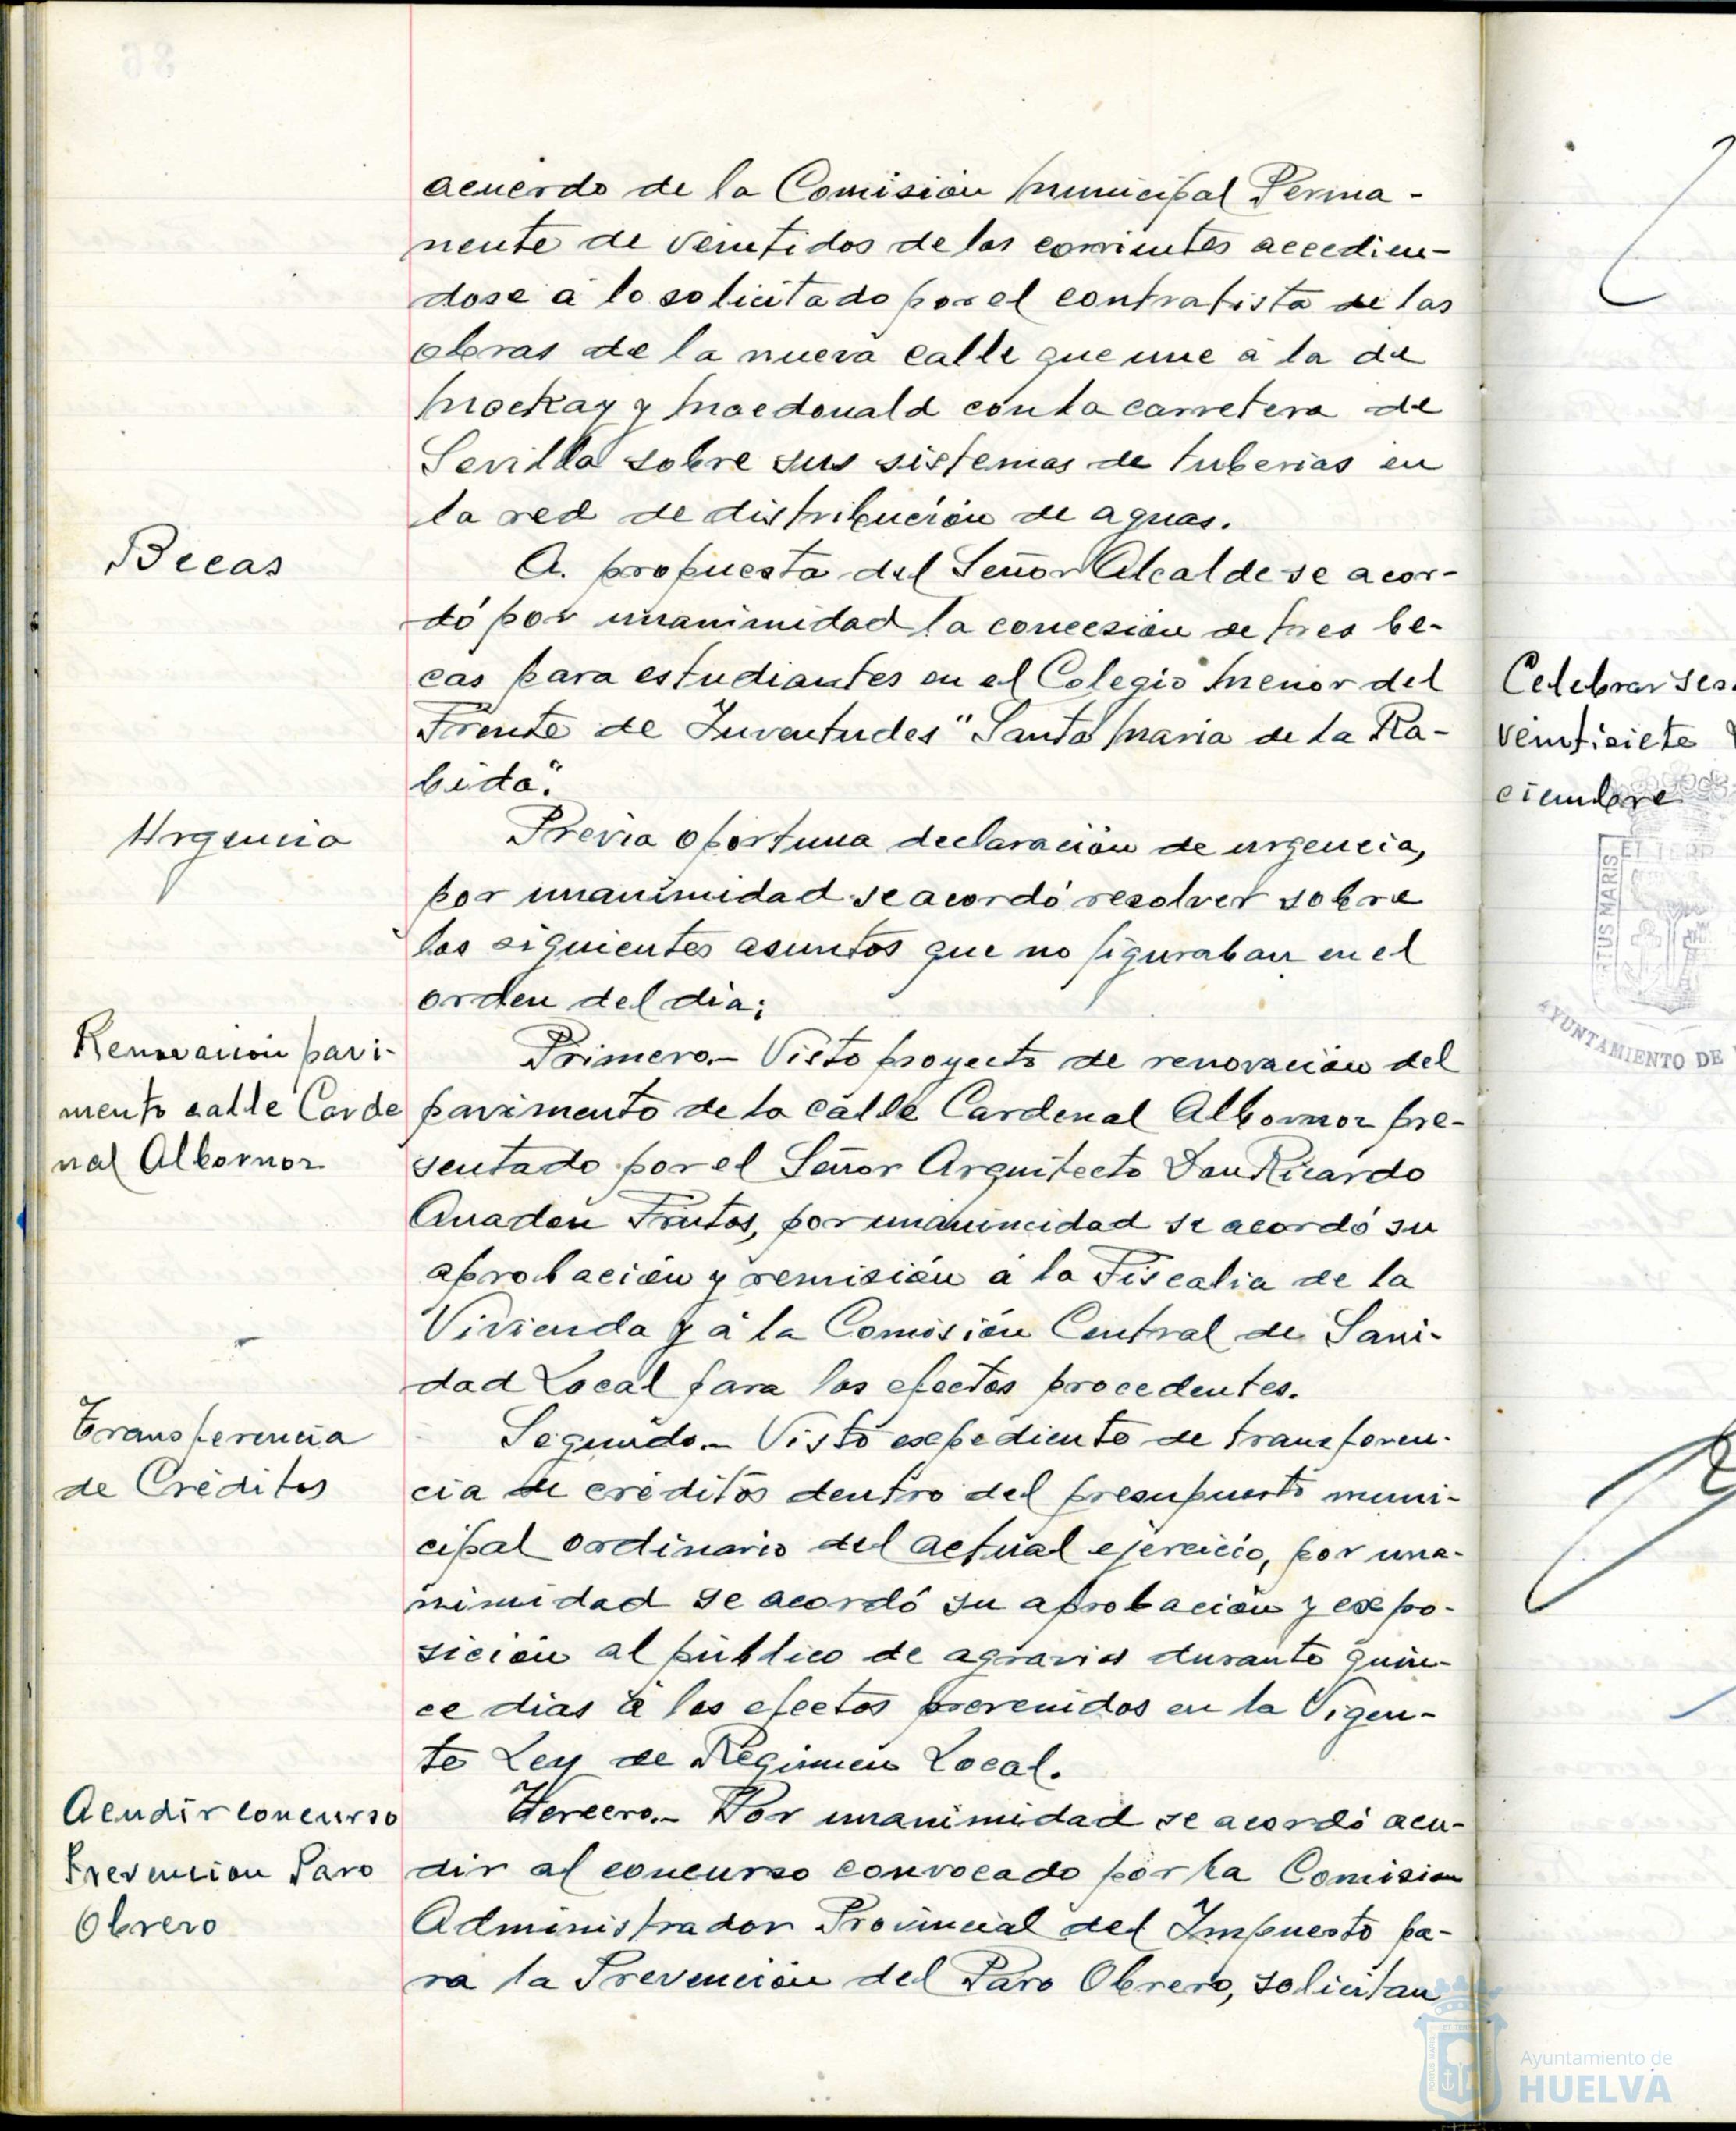 acuerdo de la Comisión Municipal Perma-
nente de veintidos de los corrientes accedien-
dose a lo solicitado por el contratista de las
obras de la nueva calle que une a la de
Mackay y Macdonald con la carretera de
Sevilla sobre sus sistemas de tuberias en
la red de distribución de aguas.
Becas
A. propuesta del Señor Alcalde se acor-
dó por unanimidad la concesión de tres be-
cas para estudiantes en el Colegio Menor del
Frente de Juventudes "Santa Maria de la Ra-
bida".
Urgencia
Previa oportuna declaración de urgencia,
por unanimidad se acordó resolver sobre
los siguientes asuntos que no figuraban en el
orden del dia:
Renovación pavi-
mento calle Carde
nal Albornoz
Primero.- Visto proyecto de renovación del
pavimento de la calle Cardenal Albornoz pre-
sentado por el Señor Arquitecto Don Ricardo
Anadón Frutos, por unanimidad se acordó su
aprobación y remisión a la Fiscalia de la
Vivienda y a la Comisión Central de Sani-
dad Local para los efectos procedentes.
Transferencia
de Créditos
Segundo.- Visto expediente de transferen-
cia de créditos dentro del presupuesto muni-
cipal ordinario del actual ejercicio, por una-
nimidad se acordó su aprobación y expo-
sición al público de agravios durante quin-
ce dias a los efectos prevenidos en la Vigen-
te Ley de Regimen Local.
Acudir concurso
Prevencion Paro
Obrero
Tercero.- Por unanimidad se acordó acu-
dir al concurso convocado por la Comision
Administrador Provincial del Impuesto pa-
ra la Prevención del Paro Obrero, solicitan
Celebrar ses
veintisiete
ciembre
AYUNTAMIENTO DE
Ayuntamiento de
HUELVA